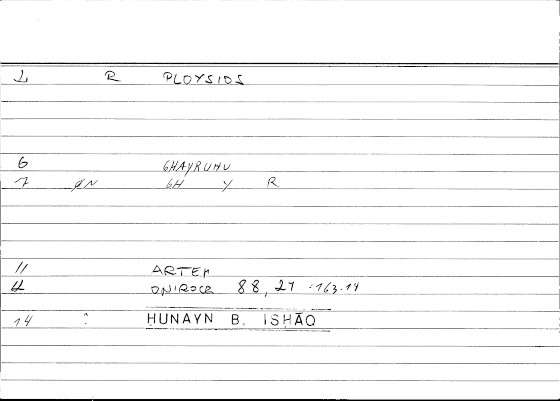 R PLOYSIOS
6 GHAYRUHU
7 ØN GH Y R
11 ARTEM
ONIROCR 88, 27 = 163.14
14 : HUNAYN B. ISHĀQ